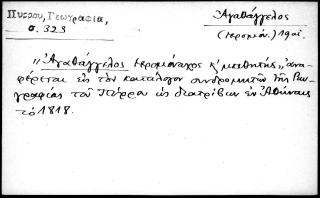 Πύρρου, Γεωγραφία,
σ. 323
Ἀγαθάγγελος
(ἱερομόν.) 19 αἰ.
„Ἀγαθάγγελος ἱερομόναχος κ' μαθητής„ ἀνα-
φέρεται εἰς τὸν κατάλογον συνδρομητῶν τῆς Γεω-
γραφίας τοῦ Πύρρου ὡς διατρίβων ἐν Ἀθήναις
τὸ 1818.